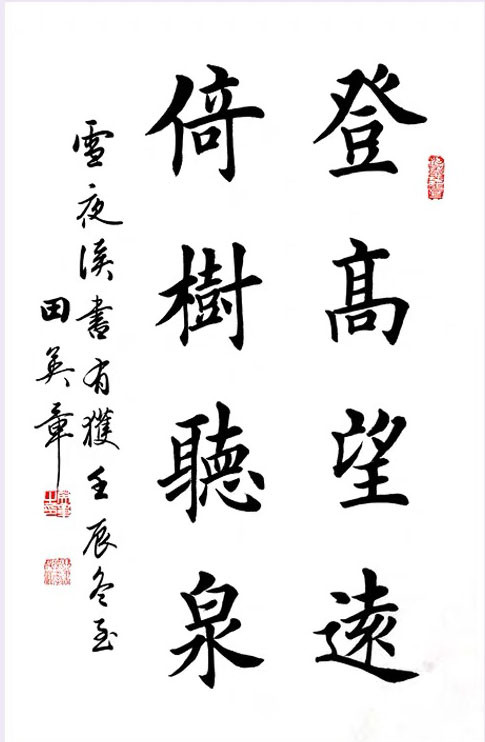 登髙望逺
倚樹聽泉
雪夜漢書有獲壬辰冬至
田英章